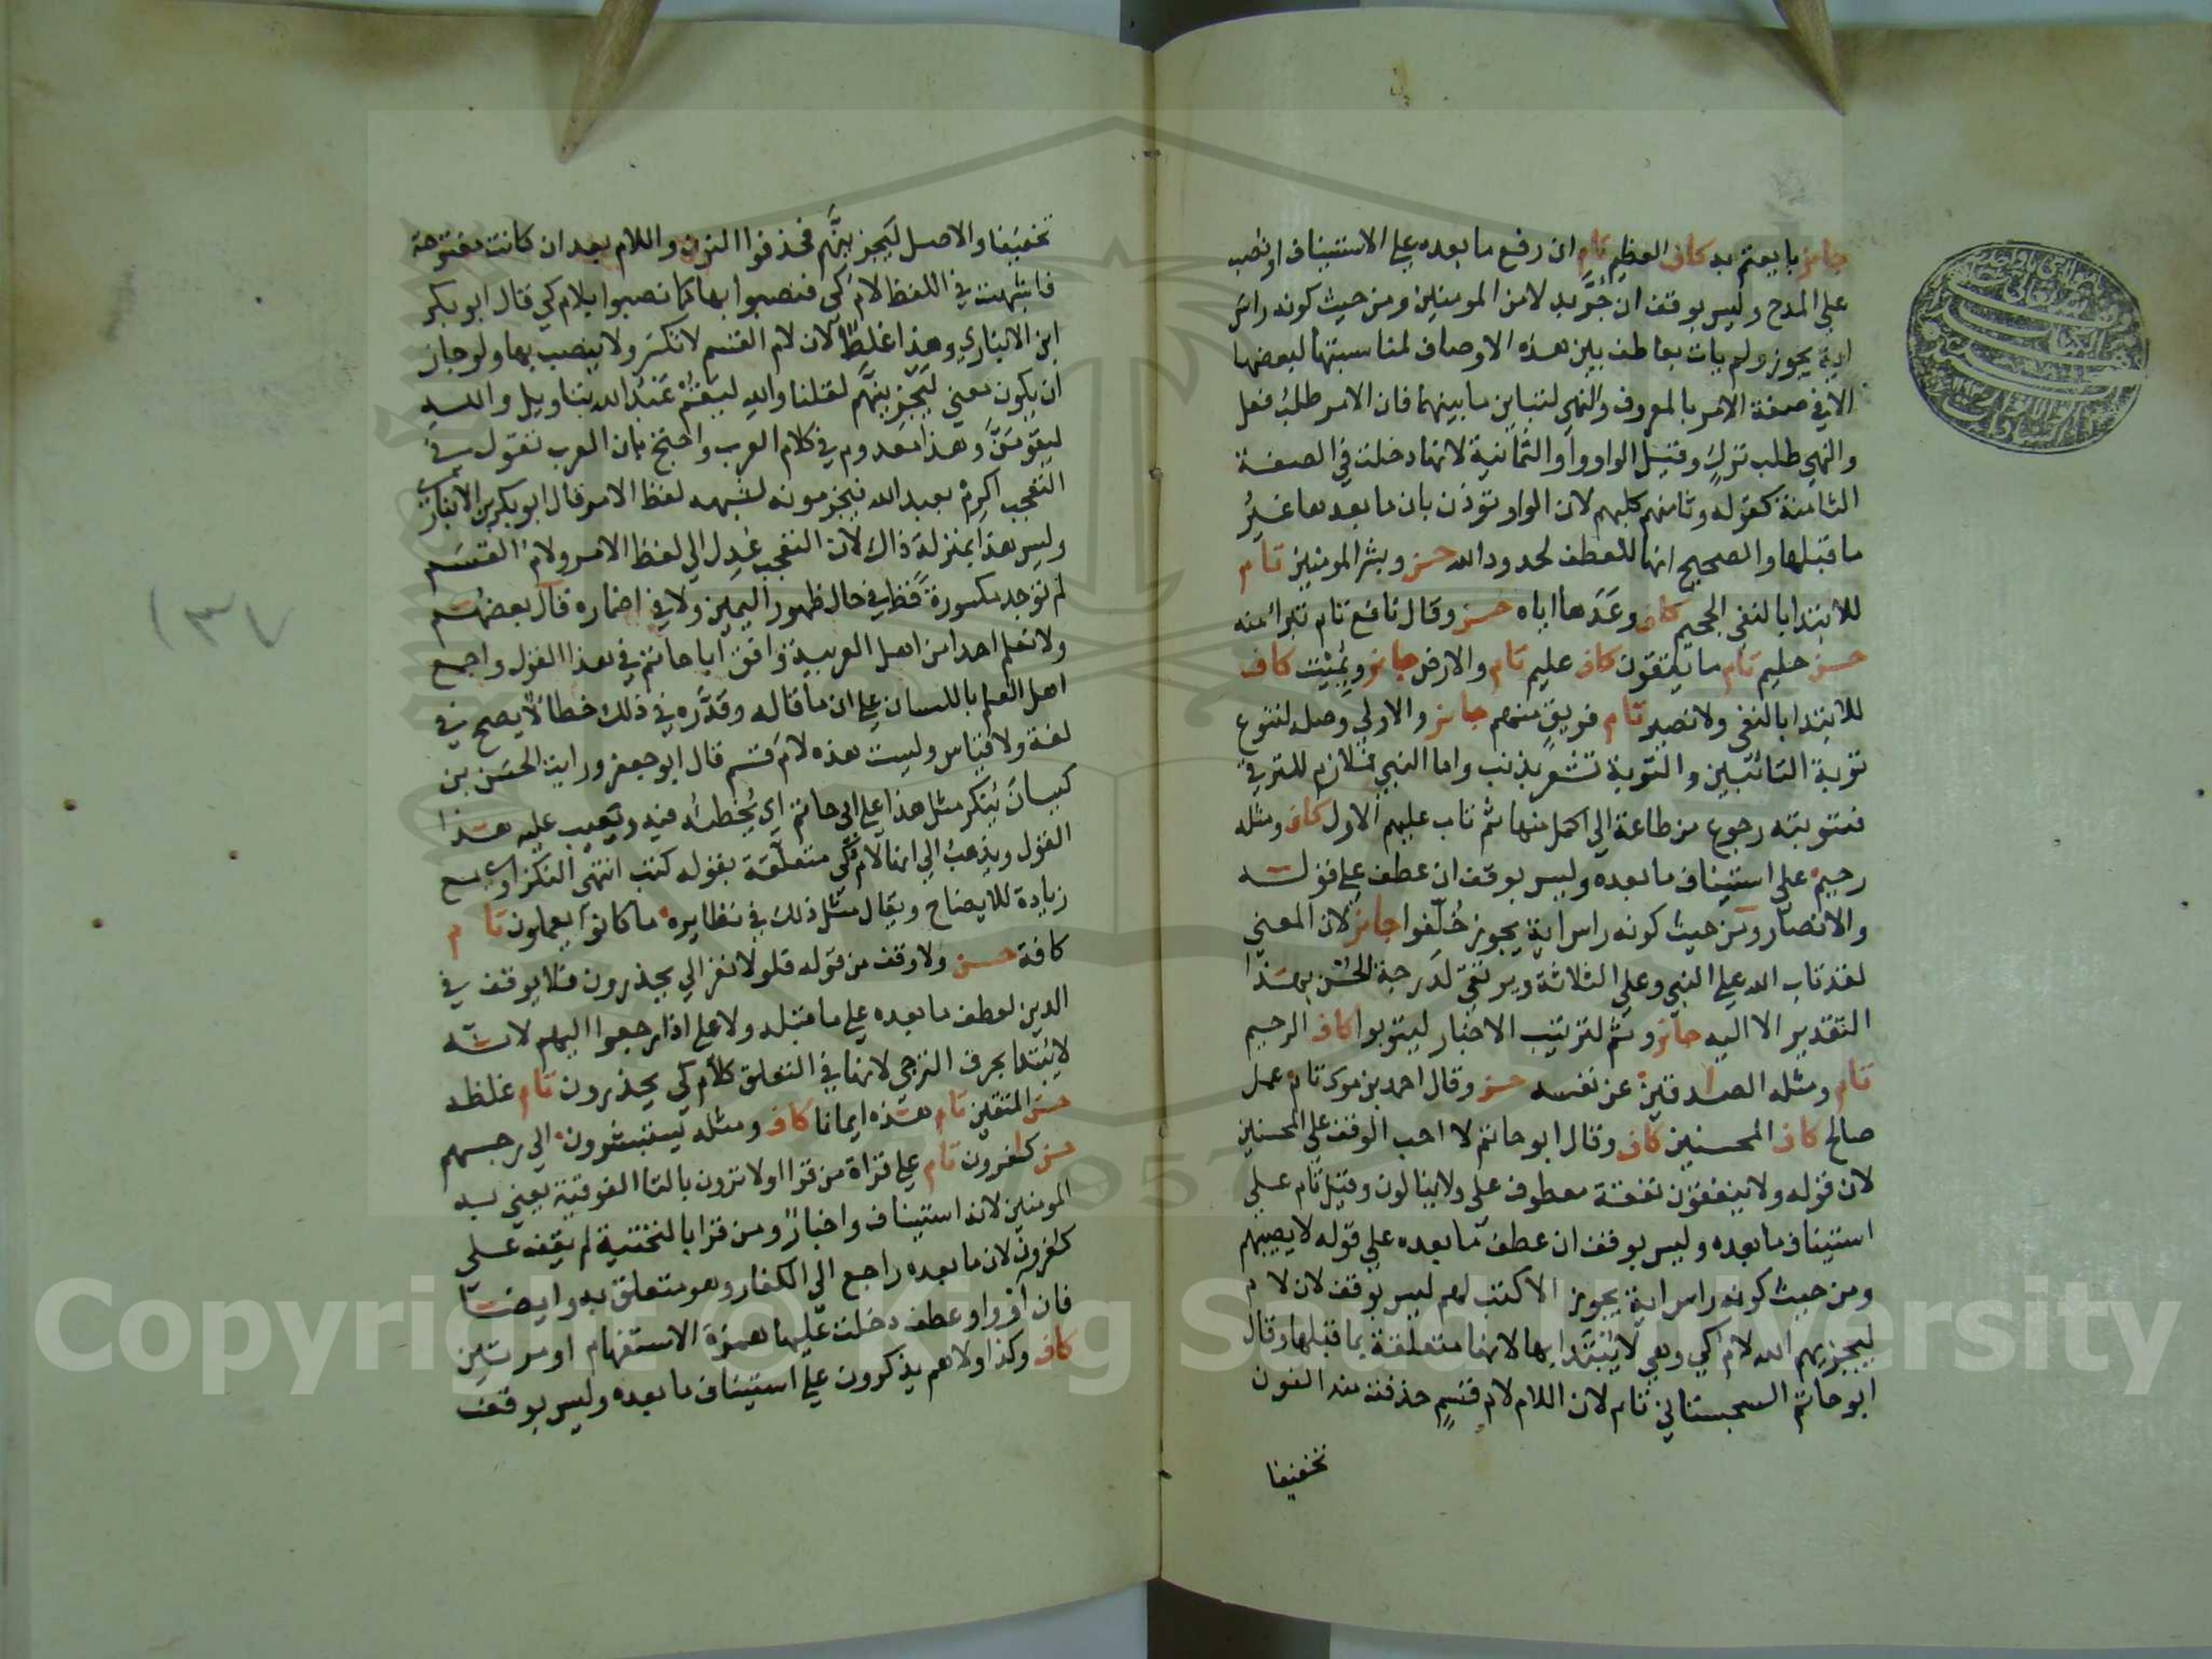 جائز بايعتم به كاف العظيم تام ان رفع ما بعده على الاستيناف او نصب
على المدح وليس بوقف ان جُرَّ بدلا من المومنين ومن حيث كونه راس
اية يجوز ولم يات بعاطف بين هذه الاوصاف لمناسبتها لبعضها
الا في صفة الامر بالمعروف والنهي لتباين ما بينهما فان الامر طلب فعل
والنهي طلب تركٍ وقيل الواو واو الثمانية لانها دخلت في الصفة
الثامنة كقوله وثامنهم كلبهم لان الواو توذن بان ما بعدها غير
ما قبلها والصحيح انها للعطف لحدود الله حسن وبشر المومنين تام
للابتدا بالنفي الجحيم كاف وعَدَها اياه حسن وقال نافع تام تبرا منه
حسن حليم تام ما يتقون كاف عليم تام والارض جائز ويميت كاف
للابتدا بالنفي ولا نصير تام فريق منهم جائز والاولي وصله لتنوع
توبة التائبين والتوبة تشعر بذنب واما النبي فملازم للترقي
فتوبته رجوع من طاعة الي اكمل منها ثم تاب عليهم الاول كاف ومثله
رحيم على استيناف ما بعده وليس بوقف ان عطف على قوله
والانصار ومن حيث كونه راس اية يجوز خُلّفوا جائز لان المعني
لقد تاب الله على النبي وعلى الثلاثة ويرتقي لدرجة الحسن بهذا
التقدير الا اليه جائز وثم لترتيب الاخبار ليتوبوا كاف الرحيم
تام ومثله الصادقين عن نفسه حسن وقال احمد بن موسى تام عمل
صالح كاف المحسنين كاف وقال ابو حاتم لا احب الوقف على المحسنين
لان قوله ولا ينفقون نفقة معطوف على ولا ينالون وقيل تام على
استيناف ما بعده وليس بوقف ان عطف ما بعده على قوله لا يصيبهم
ومن حيث كونه راس اية يجوز الا كتب لهم ليس بوقف لان لام
ليجزيهم الله لام كي وهي لا يبتدا بها لانها متعلقة بما قبلها وقال
ابو حاتم السجستاني تام لان اللام لام قسمٍ حذفت منه النون
تخفيفا
تخفيفا والاصل ليَجزيَنَّهم فحذفوا النون واللام بعد ان كانت مفتوحة
فاشبهت في اللفظ لام كي فنصبوا بها كما نصبوا بلام كي قال ابو بكر
ابن الانباري وهذا غلط لان لام القسم لا تكسر ولا ينصب بها ولو جاز
ان يكون معني ليجزينهم لقلنا والله ليقم عبد الله بتاويل والله
ليقومَنَّ وهذا معدوم في كلام العرب واحتج بان العرب تقول في
التعجب اكرِمْ بعبد الله فيجزمونه لشبهه لفظ الامر قال ابو بكر بن الانباري
وليس هذا بمنزلة ذاك لان التعجب عُدِل الي لفظ الامر ولام القسم
لم توجد مكسورة قط في حال ظهور اليمين ولا في اضماره قال بعضهم
ولا نعلم احدا من اهل العربية وافق ابا حاتم في هذا القول واجمع
اهل العلم باللسان على ان ما قاله وقدَّره في ذلك خطا لا يصح في
لغة ولا قياس وليست هذه لام قسم قال ابو جعفر ورايت الحسن بن
كيسان يُنكر مثل هذا على ابي حاتم اي يُخطئه فيه ويعيب عليه هذا
القول ويذهب الي انها لام كي متعلقة بقوله كتب انتهى النكزاوي مع
زيادة للايضاح ويقال مثل ذلك في نظايره ما كانوا يعملون تام
كافة حسن ولا وقف من قوله فلولا نفر الي يحذرون فلا يوقف في
الدين لعطف ما بعده على ما قبله ولا على اذا رجعوا اليهم لانه
لا يبتدا بحرف الترجي لانها في التعلق كلام كي يحذرون تام غلظة
حسن المتقين تام هذه ايمانا كاف ومثله يستبشرون الي رجسهم
حسن كٰفرون تام على قراة من قرا اولا ترون بالتا الفوقية يعني به
المومنين لانه استيناف واخبار ومن قرا بالتحتية لم يقف على
كٰفرون لان ما بعده راجع الي الكفار وهو متعلق به وايضا
فان الواو واو عطف دخلت عليها همزة الاستفهام او مرتين
كاف وكذا ولا هم يذكرون على استيناف ما بعده وليس بوقف
١٣٧
Copyright © King Saud University
1957